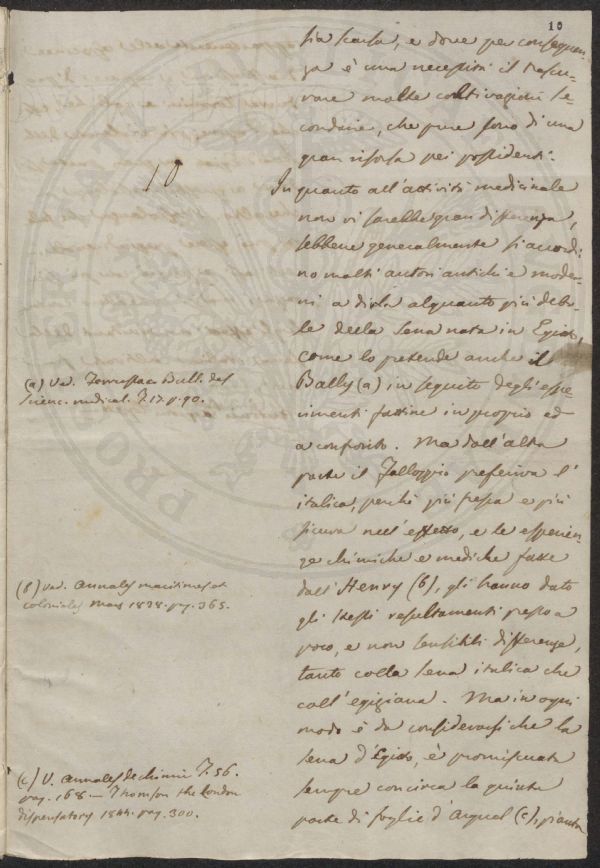 10
sia scarsa, e dove per conseguen-
za è una necessità il trascu-
rare molte coltivazioni se
condarie, che pure sono di una
gran risorsa pei possidenti.
10
In quanto all'attività medicinale
non vi sarebbe gran differenza,
sebbene generalmente si accordi
no molti autori antichi e moder-
ni a dirla alquanto più debo-
le della Sena nata in Egitto,
come lo pretende anche il
Bally (a) in seguito degli espe-
rimenti fattine in proprio ed
a confronto. Ma dall'altra
parte il Falloppio preferiva l'
italica, perchè più fresca e più
sicura nell'effetto, e le esperien-
ze chimiche e mediche fatte
dall'Henry (b), gli hanno dato
gli stessi resultamenti presso a
poco, e non sensibili differenze,
tanto colla sena italica che
coll'egiziana. Ma in ogni
modo è da considerarsi che la
sena d'Egitto, è promiscuata
sempre con circa la quinta
parte di foglie d'Arguel (c), pianta
(a) Ved. Bull. des
Scienc. medical. T. 17. p. 90.
(b) Ved. Annales maritimes et
coloniales mars 1828. pag. 365.
(c) V. Annales de chimie T. 56.
pag. 168 — Thomson the London
dispensatory 1844. pag. 300.